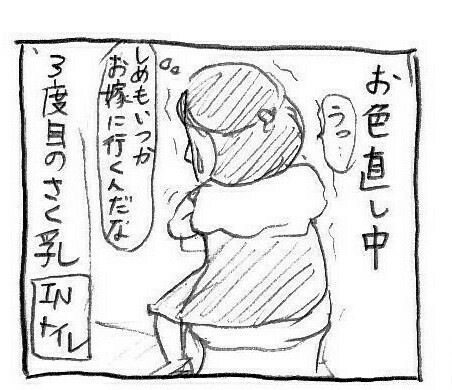 お色直し中
うっ…
しめもいつか
お嫁に行くんだな
3度目のさく乳
IN
トイレ